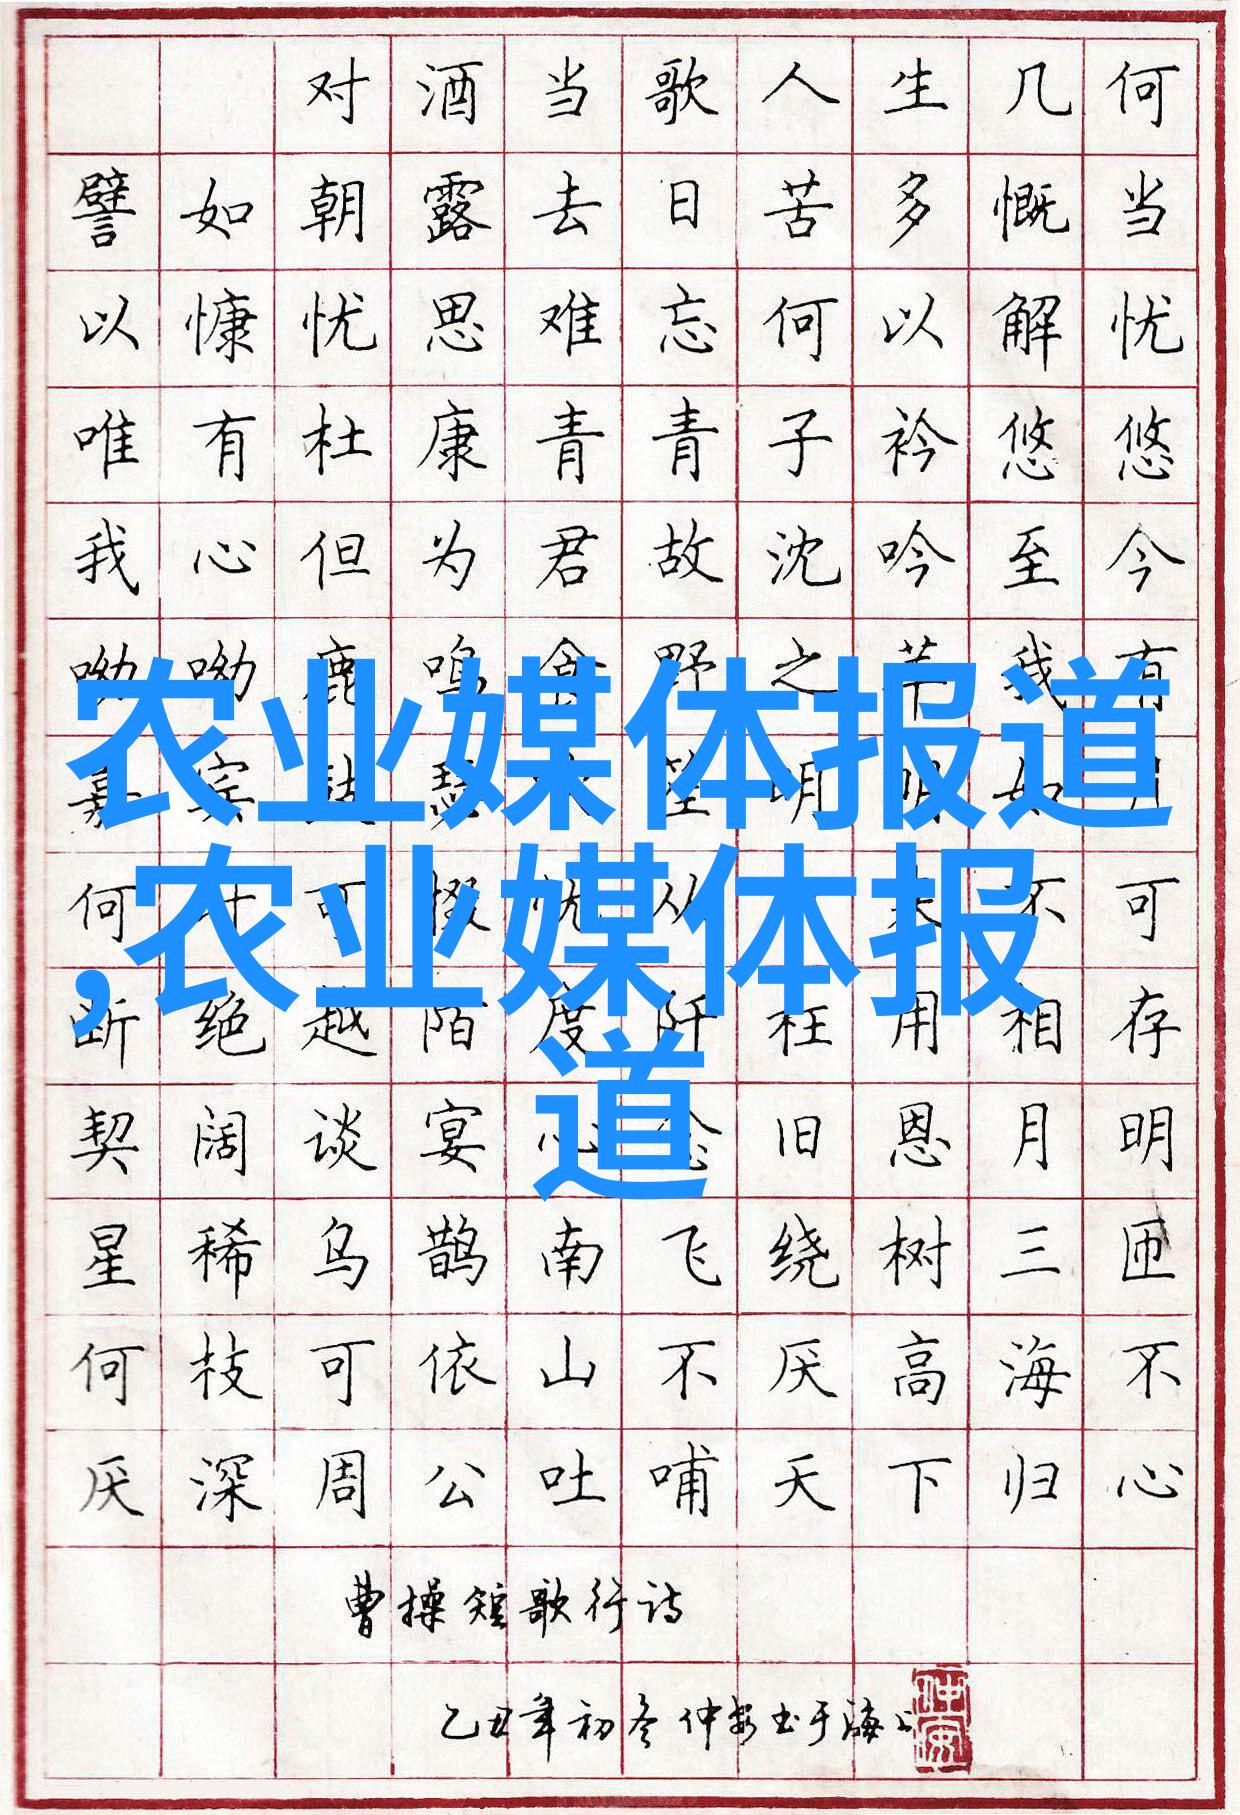 对酒当歌人生几何
譬如朝露去日苦多慨当
以慷忧思难忘何以解忧
唯有杜康青青子衿悠悠
我心但为君故沈吟至今
呦呦鹿鸣食野之苹我有
农业媒体报道
嘉宾鼓瑟笙明明如月
,农业媒体报
何时可掇忧从来不可
断绝越陌度阡枉用相存
道
契阔谈宴心念旧恩月明
星稀乌鹊南飞绕树三匝
何枝可依山不厌高海不
厌深周公吐哺天下归心
曹操短歌行诗
乙丑年初冬仲安书于海上
仲安